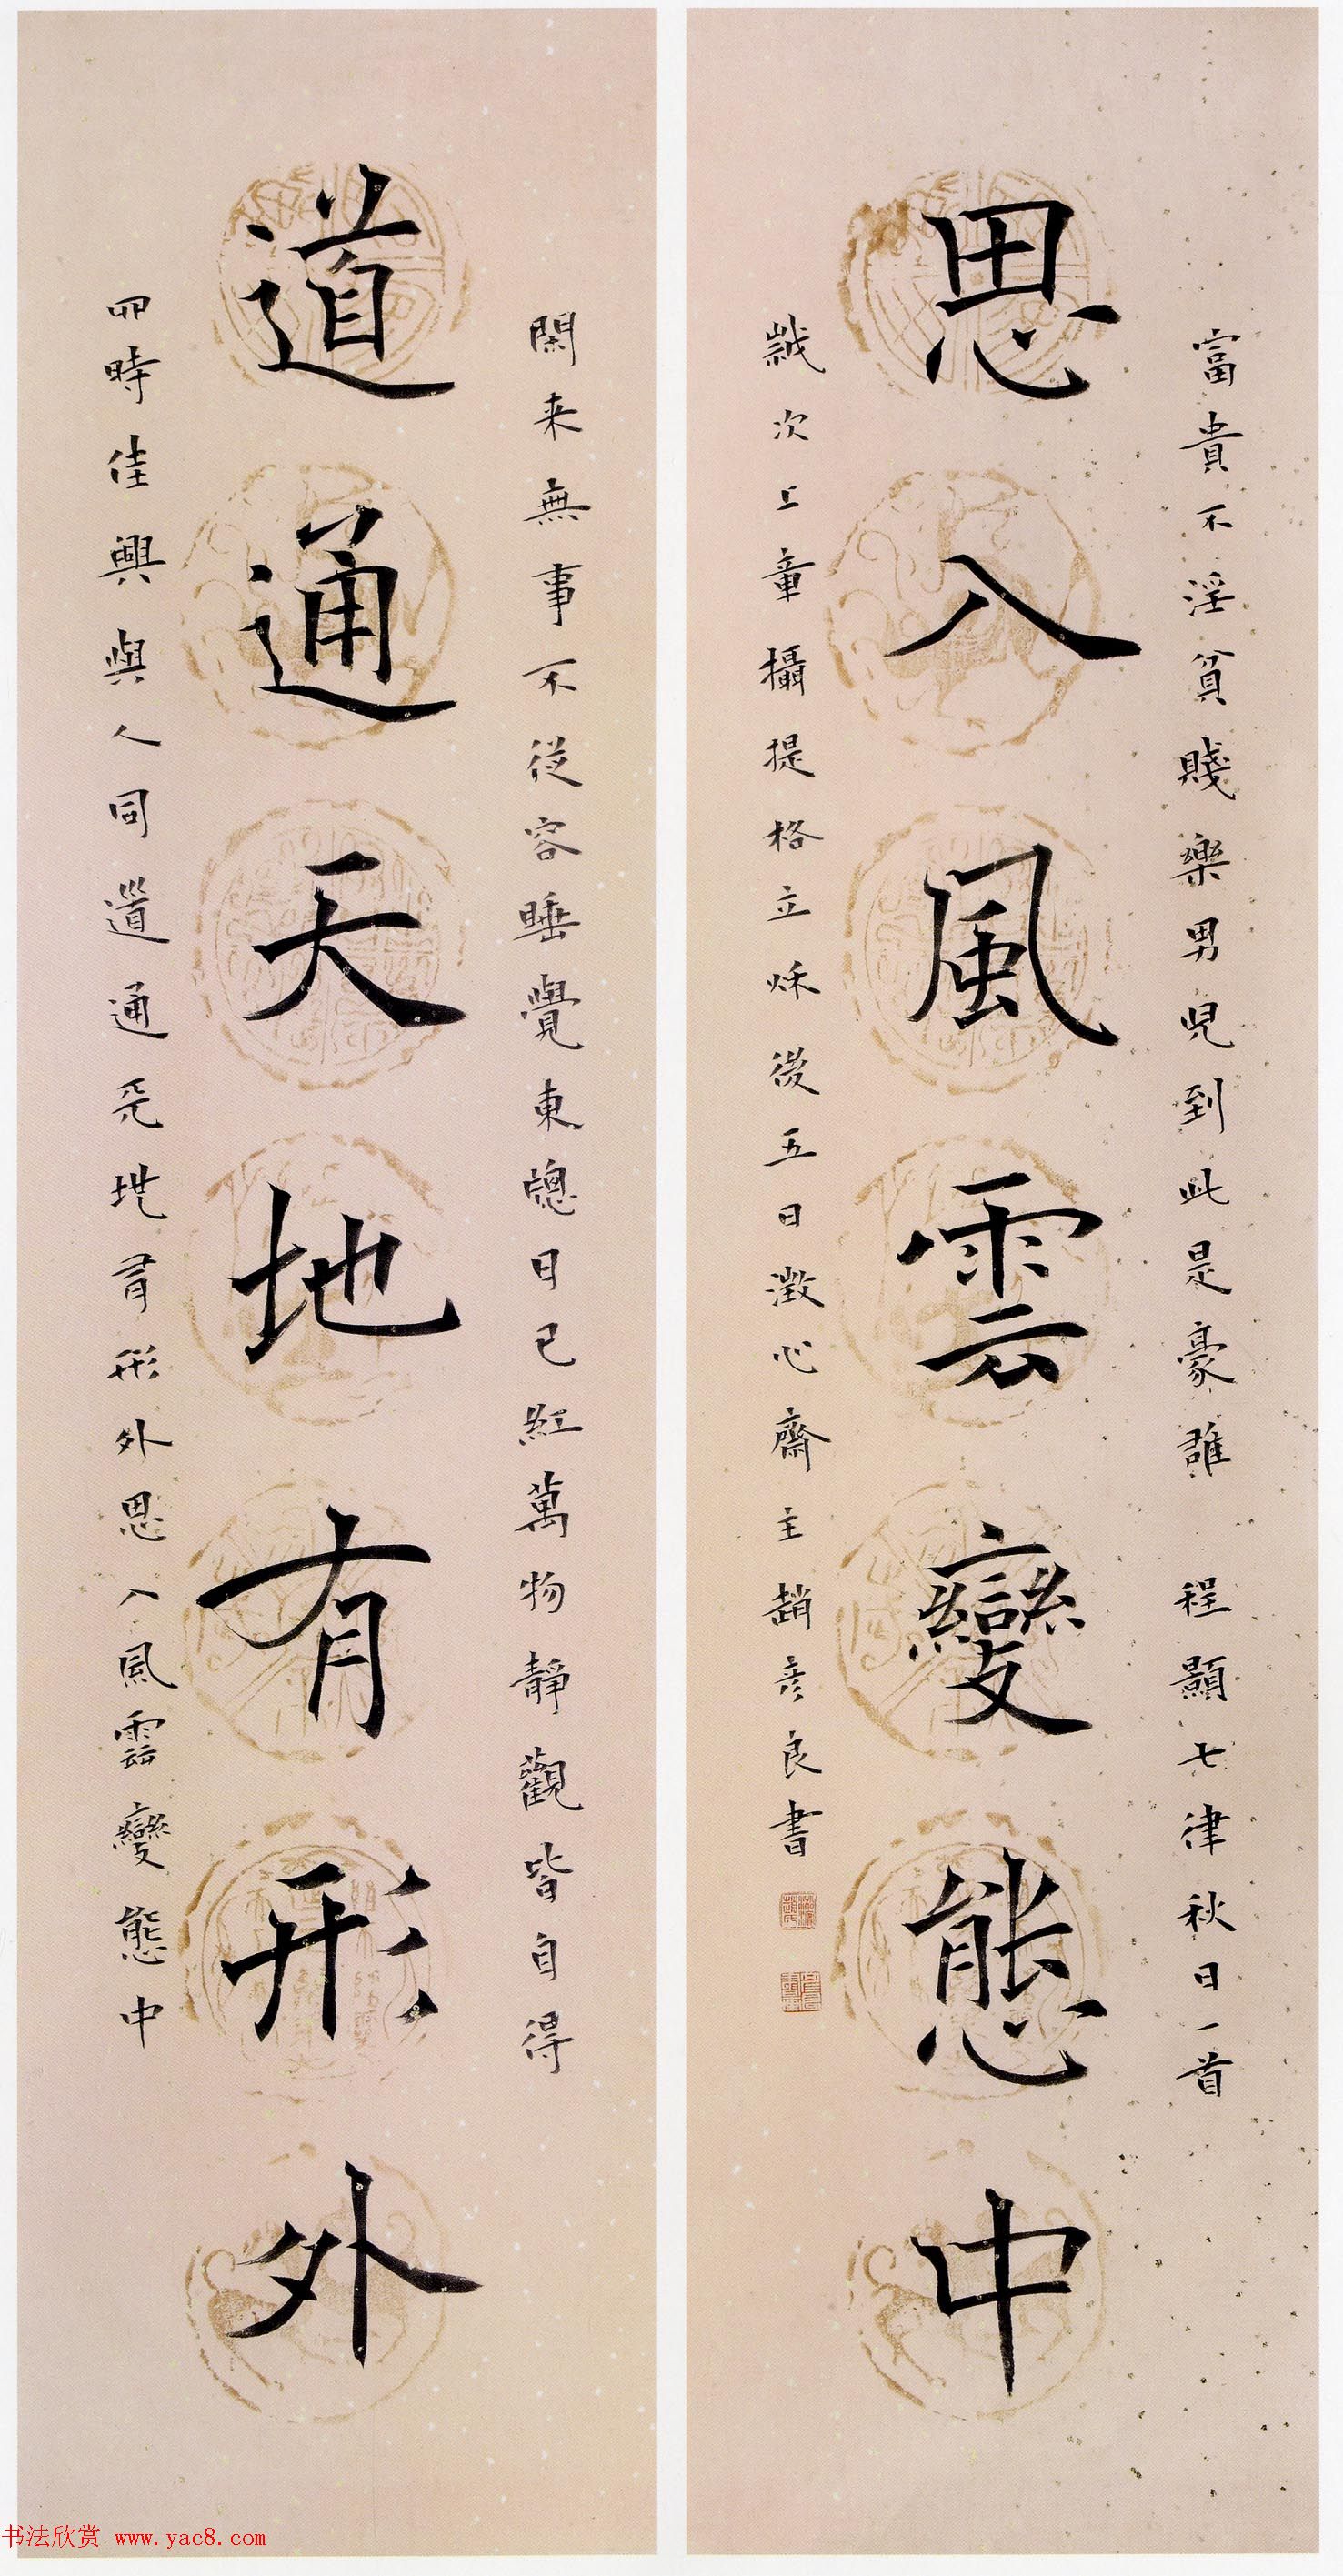 閑来無事不従容睡覺東牕日已紅萬物靜觀皆自得
道通天地有形外
四時佳興與人同道通天地有形外思入風雲變態中
富貴不淫貧賤樂男兒到此是豪雄 程顥七律秋日一首
思入風雲變態中
歲次上章攝提格立秌後五日澂心齋主趙彥良書
书法欣赏 www.yac8.com